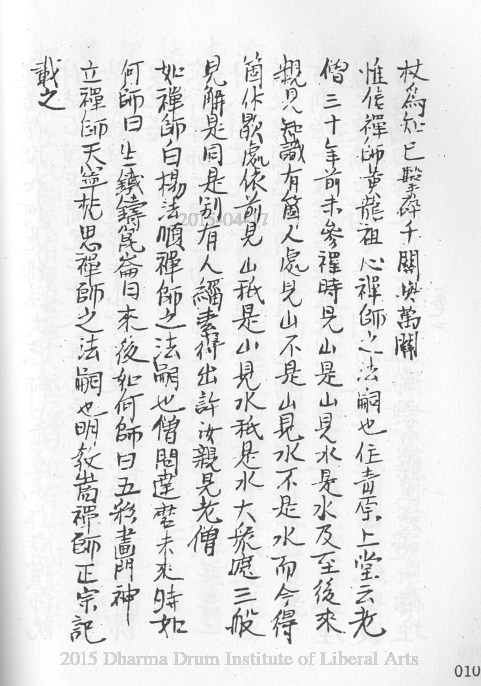 杖為知已擊碎千關與萬關
惟信禪師黃龍祖心禪師之法嗣也住青原上堂云老
僧三十年前未參禪時見山是山見水是水及至後來
親見知識有箇入處見山不是山見水不是水而今得
箇休歇處依前見山祇是山見水祇是水大眾這三般
見解是同是別有人緇素得出許汝親見老僧
如禪師白楊法順禪師之法嗣也僧問達磨未來時如
何師曰生鐵鑄崑崙曰來後如何師曰五彩畫門神
立禪師天寧梵思禪師之法嗣也明教嵩禪師正宗記
載之
2015 Dharma Drum Institute of Liberal Arts
010